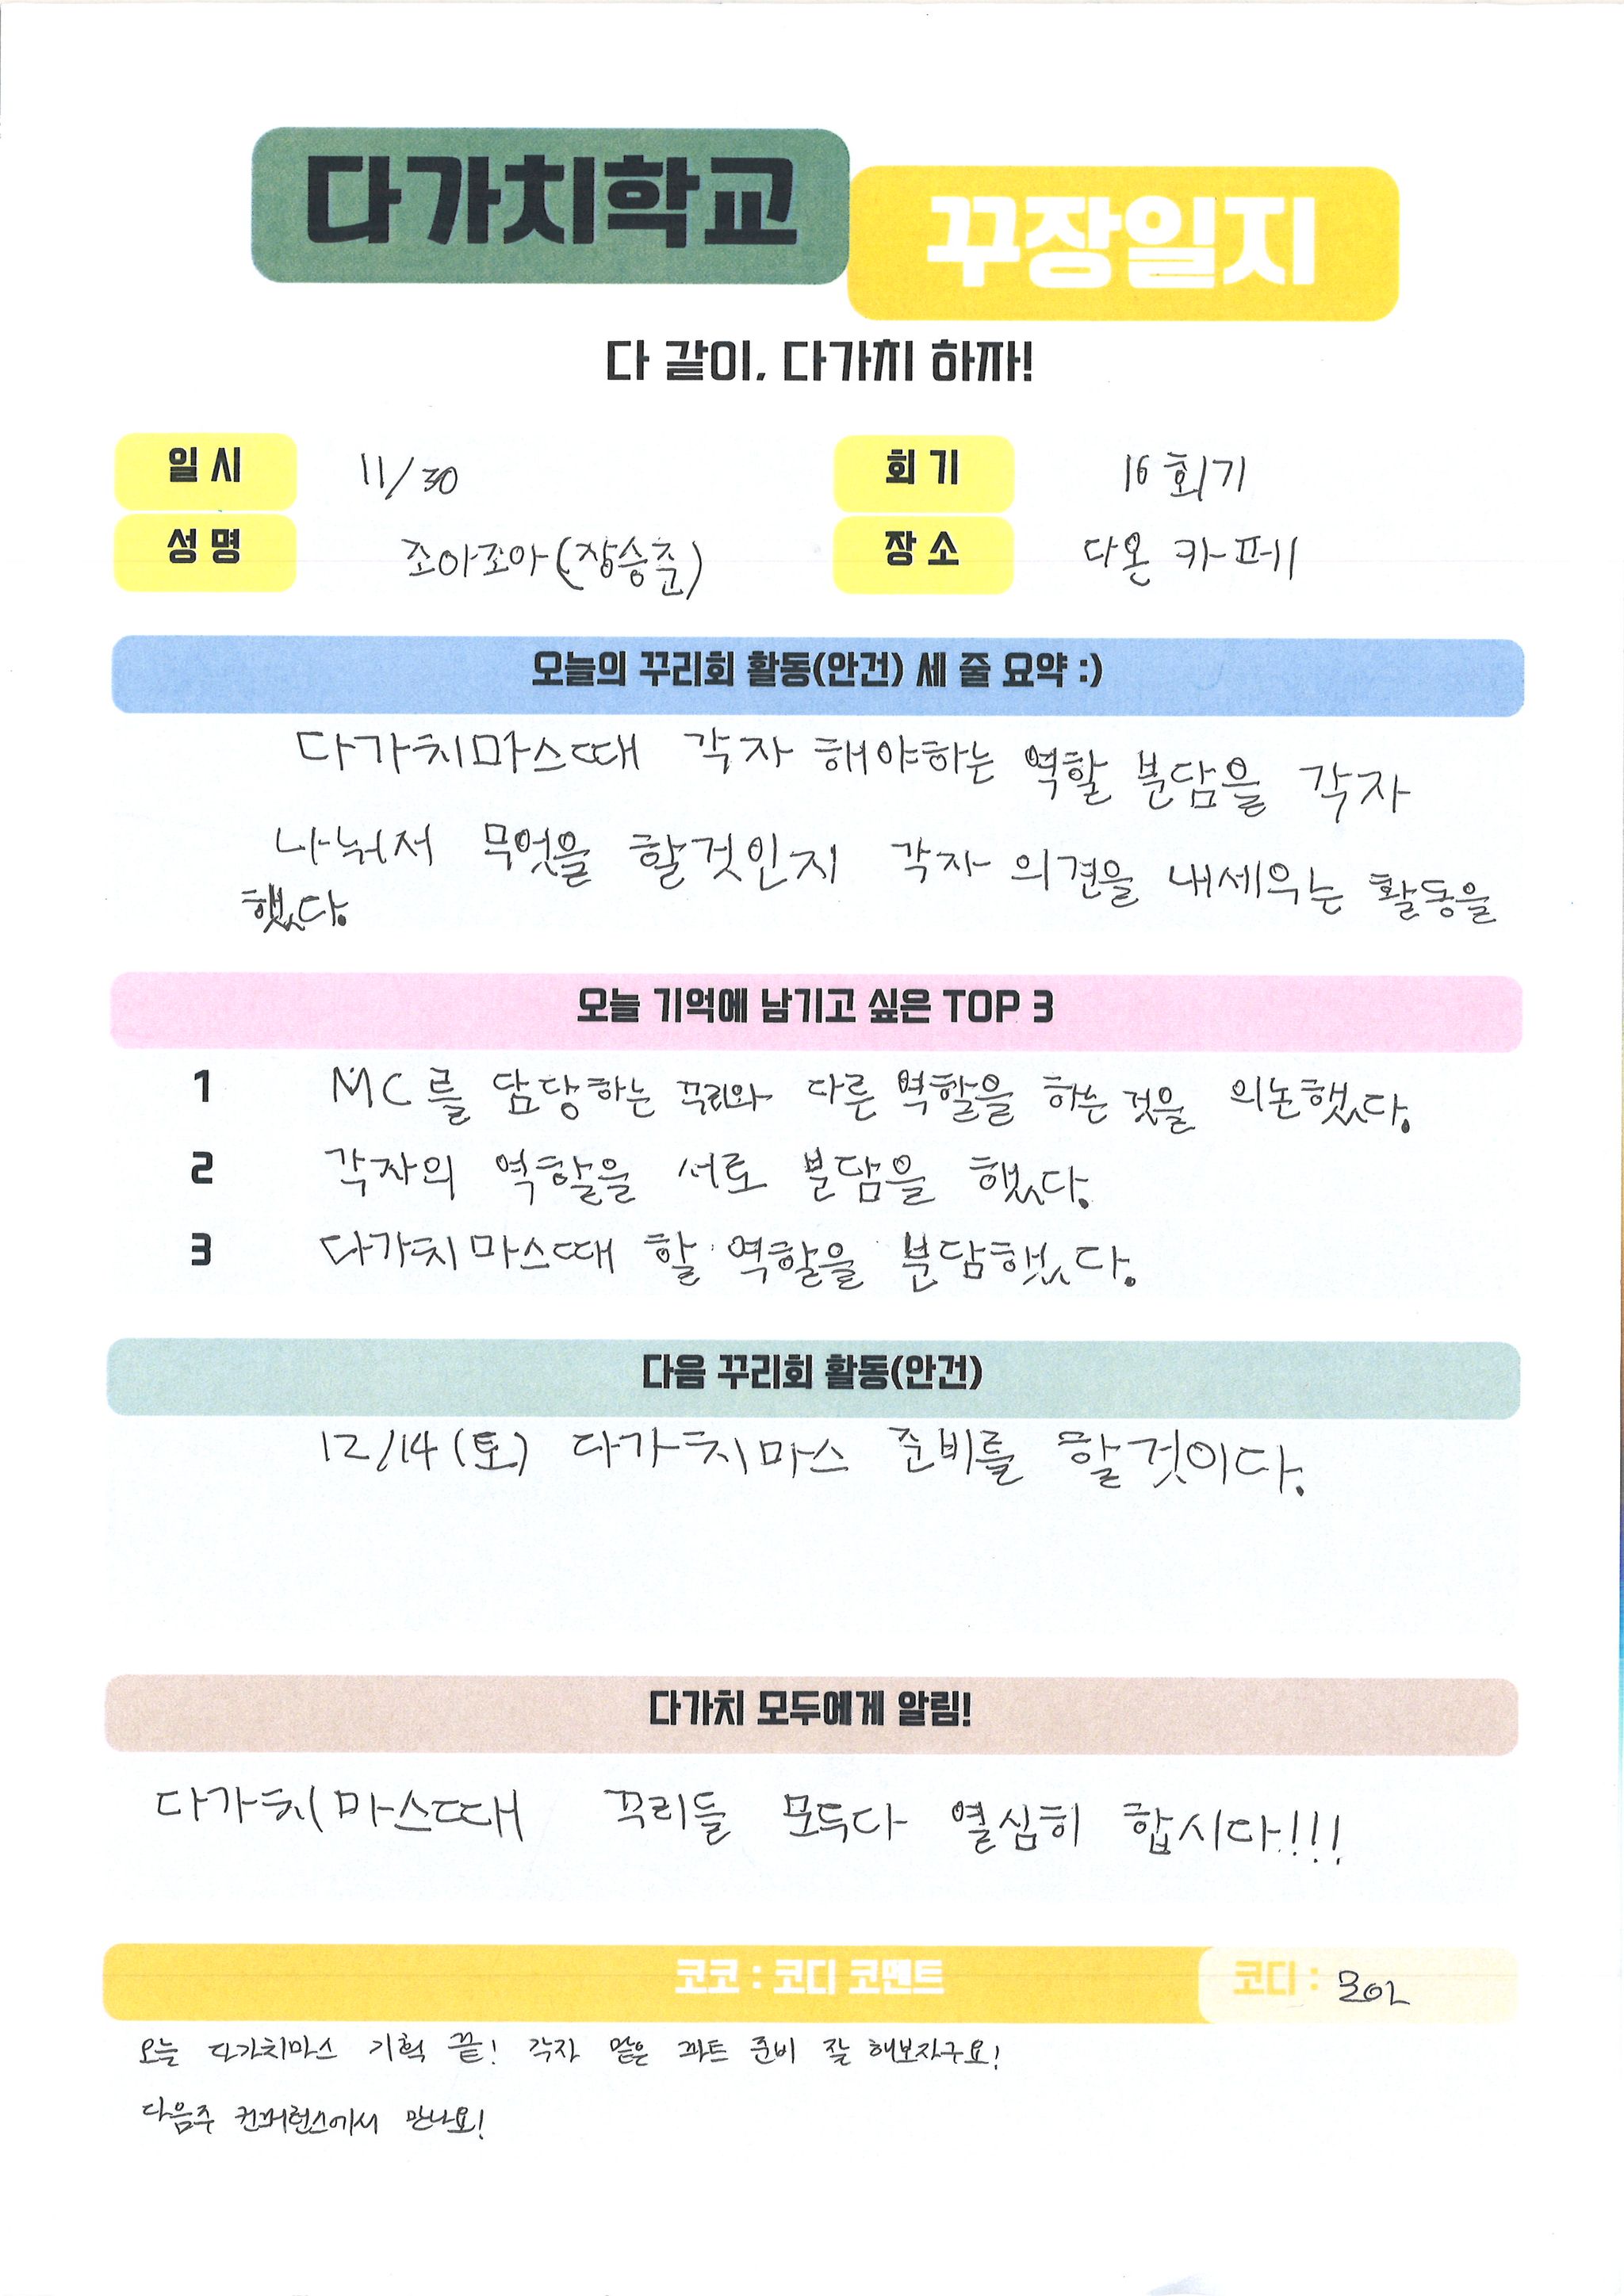 다가치학교
꾸장일지
다 같이, 다가치 하자!
일 시 11/30 회 기 16회기
성 명 조아조아(장승준) 장 소 다온 카페
오늘의 꾸리회 활동(안건) 세 줄 요약 :)
다가치마스때 각자 해야하는 역할 분담을 각자
나눠서 무엇을 할것인지 각자 의견을 내세우는 활동을
했다.
오늘 기억에 남기고 싶은 TOP 3
1 MC를 담당하는 꾸리와 다른 역할을 하는 것을 의논했다.
2 각자의 역할을 서로 분담을 했다.
3 다가치마스때 할 역할을 분담했다.
다음 꾸리회 활동(안건)
12/14(토) 다가치마스 준비를 할것이다.
다가치 모두에게 알림!
다가치마스때 꾸리들 모두다 열심히 합시다!!!
코코 : 코디 코멘트 코디 : 모아
오늘 다가치마스 기획 끝! 각자 맡은 파트 준비 잘 해보자구요!
다음주 컨퍼런스에서 만나요!